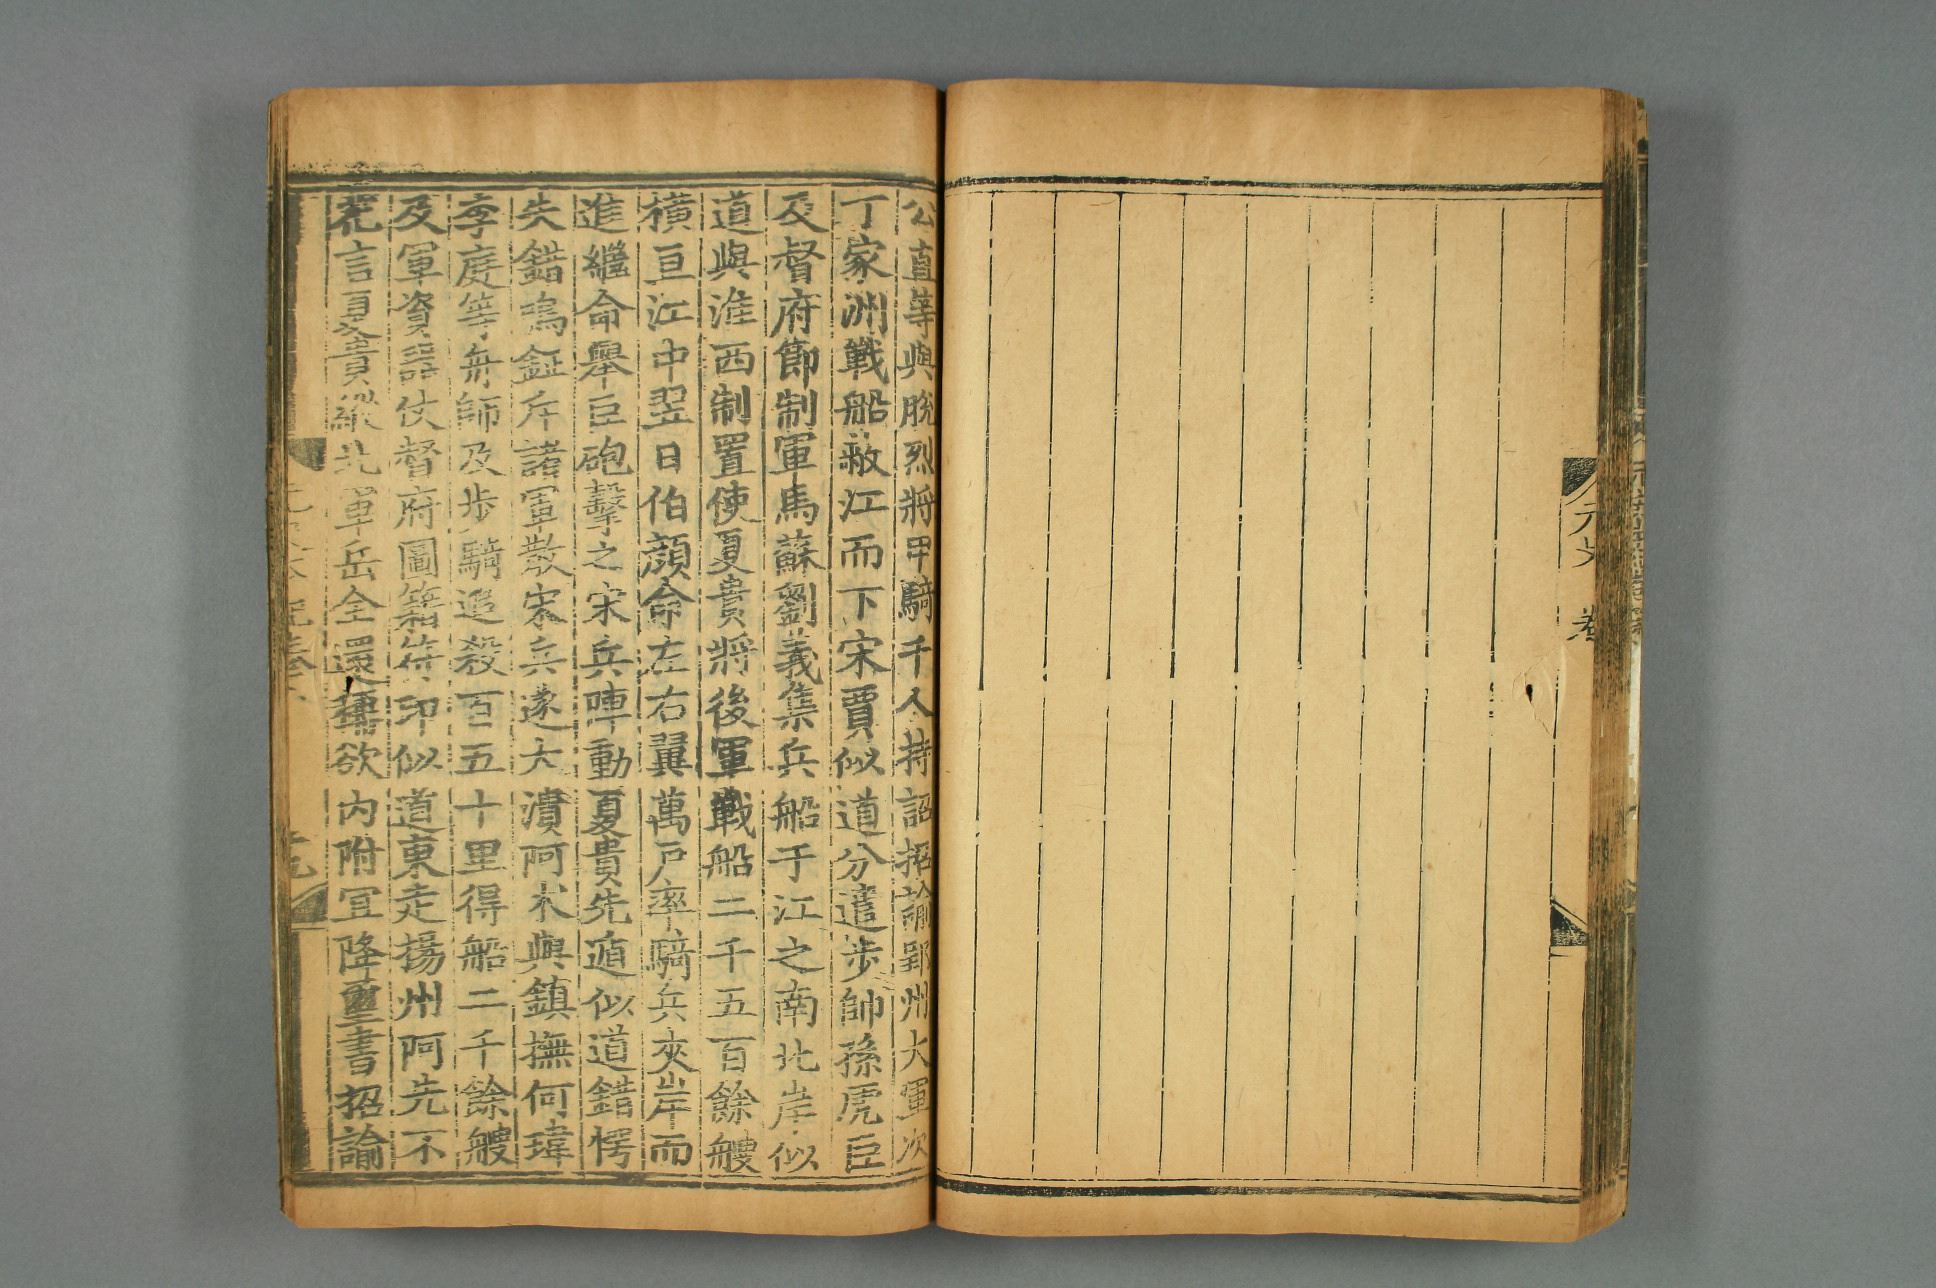 元史 卷
公直等與脫烈將甲騎千人持詔招諭郢州大軍次
丁家洲戰船蔽江而下宋賈似道分遣步帥孫虎臣
及督府節制軍馬蘇劉義集兵船于江之南北岸似
道與淮西制置使夏貴將後軍戰船二千五百餘艘
橫亘江中翌日伯顏命左右翼萬戶率騎兵夾岸而
進繼命舉巨砲擊之宋兵陣動夏貴先遁似道錯愕
失錯鳴鉦斥諸軍散宋兵遂大潰阿朮與鎮撫何瑋
李庭等舟師及步騎追殺百五十里得船二千餘艘
及軍資器仗督府圖籍符印似道東走揚州阿先不
花言夏貴縱北軍岳全還稱欲內附宜降璽書招諭